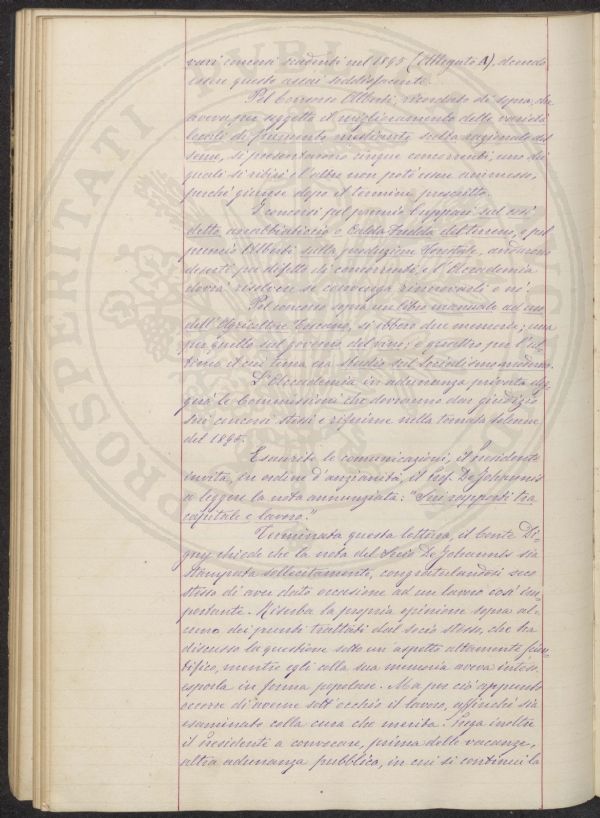 vari concorsi scadenti nel 1895 (Allegato A), dicendo
essere questo assai soddisfacente.
Pel Concorso Alberti, ricordato di sopra, che
aveva per soggetto il miglioramento delle varietà
locali di frumento mediante scelta razionale del
seme, si presentarono cinque concorrenti, uno dei
quali si ritirò e l'altro non potè essere ammesso,
perchè giunse dopo il termine prescritto.
I concorsi pel premio Cuppari sul così
detto arrabbiaticcio o Calda fredda del terreno, e pel
premio Alberti sulla produzione forestale, andarono
deserti per difetto di concorrenti, e l'Accademia
dovrà risolvere se convenga rinnovarli o nò.
Pel concorso sopra un libro manuale ad uso
dell'Agricoltore Toscano, si ebbero due memorie; una
per quello sul governo dei vini; e quattro per l'ul-
timo il cui tema era Studio sul Socialismo moderno.
L'Accademia in adunanza privata eleg-
gerà le Commissioni che dovranno dar giudizio
sui concorsi stessi e riferirne nella tornata solenne
del 1896.
Esaurite le comunicazioni, il Presidente
invita, in ordine d'anzianità, il Prof. De Johannis
a leggere la nota annunziata: "Sui rapporti tra
capitale e lavoro."
Terminata questa lettura, il Conte Di-
gny chiede che la nota del Socio De Johannis sia
stampata sollecitamente, congratulandosi seco
stesso di aver dato occasione ad un lavoro così im-
portante. Riserba la propria opinione sopra al-
cuno dei punti trattati dal socio stesso, che ha
discusso la questione sotto un aspetto altamente scien-
tifico, mentre egli colla sua memoria aveva inteso
esporla in forma popolare. Ma per ciò appunto
occorre di averne sott'occhio il lavoro, affinchè sia
esaminato colla cura che merita. Prega inoltre
il Presidente a convocare, prima delle vacanze,
altra adunanza pubblica, in cui si continui la
PROSPERITATI PUBLICAE AUGENDAE